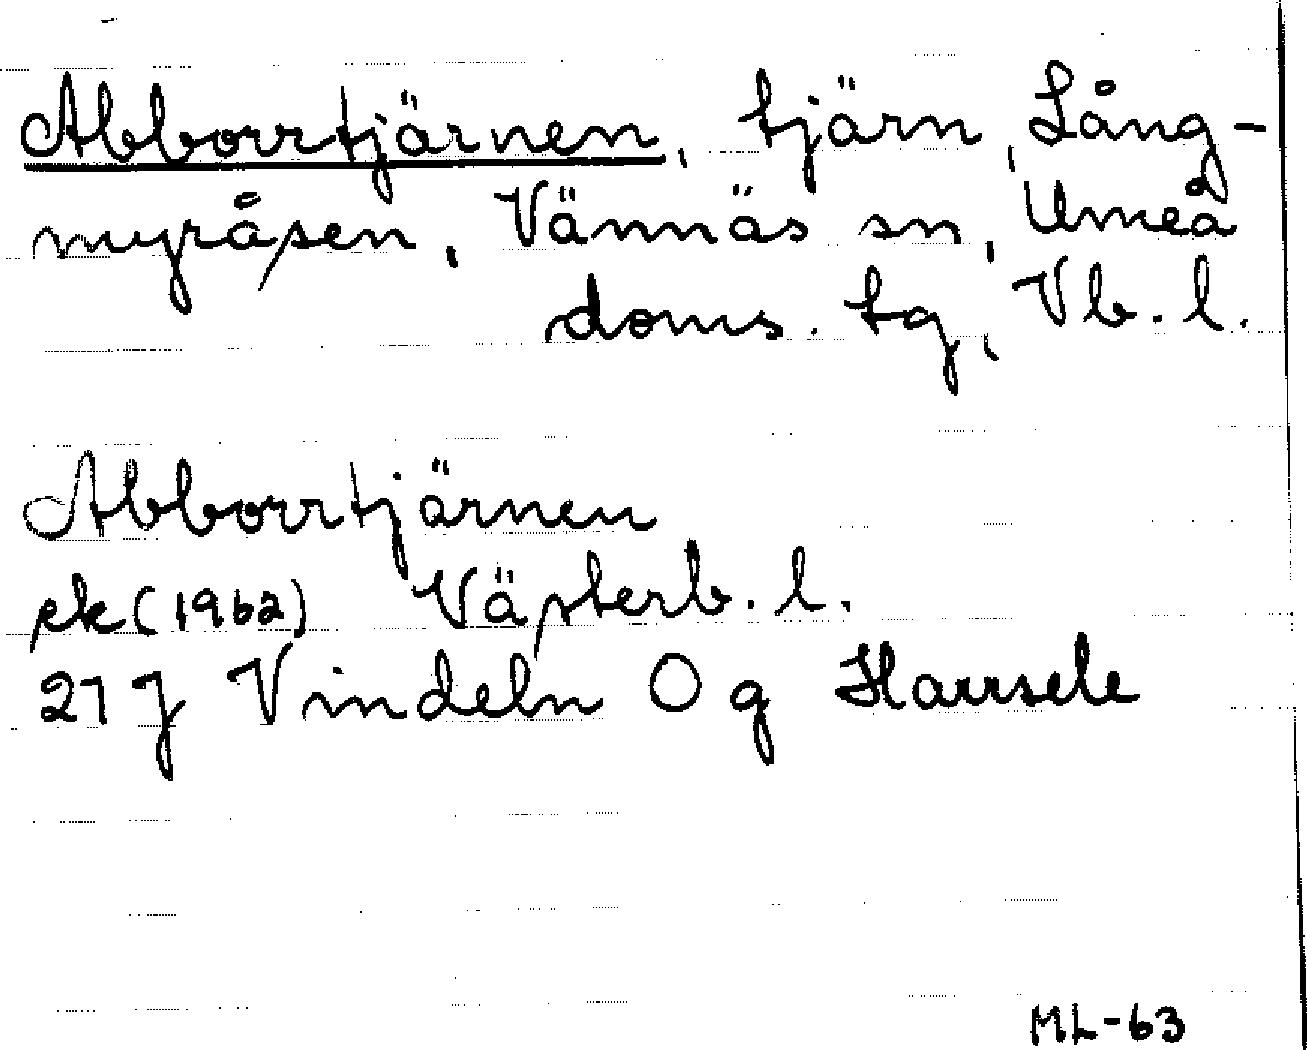 Abborrtjärnen, tjärn, Lång-
myråsen, Vännäs sn, Umeå
doms. tg, Vb. l.
Abborrtjärnen
ek (1962) Västerb. l.
21 J Vindeln 0 g Harrsele
ML-63